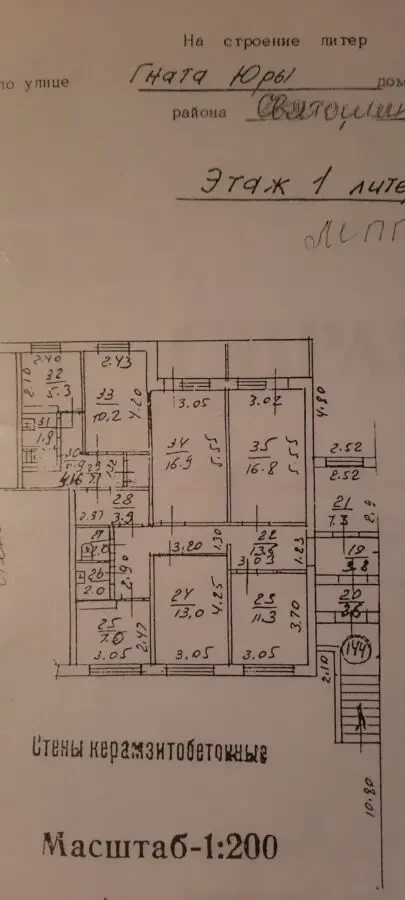 На строение литер
по улице Гната Юры дом
района Святошин
Этаж 1 лите
2.40
2.43
32
5.3
2.10
33
10.2
4.20
3.05
3.02
4.80
31
1.9
34
16.9
5.55
35
16.8
5.55
2.52
2.52
28
3.9
2.97
21
7.3
2.9
27
3.20
1.30
22
1.23
19
3.8
26
2.0
2.90
24
13.0
4.25
23
11.3
3.70
20
3.6
25
7.0
2.47
144
3.05
3.05
3.05
2.10
10.80
Стены керамзитобетонные
Масштаб-1:200